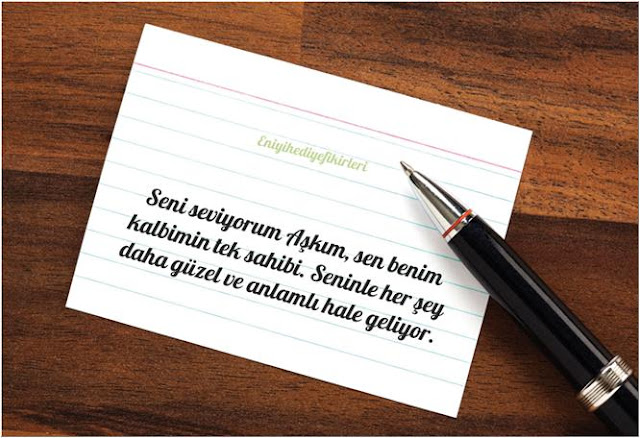 Eniyihediyefikirleri
Seni seviyorum Aşkım, sen benim
kalbimin tek sahibi. Seninle her şey
daha güzel ve anlamlı hale geliyor.